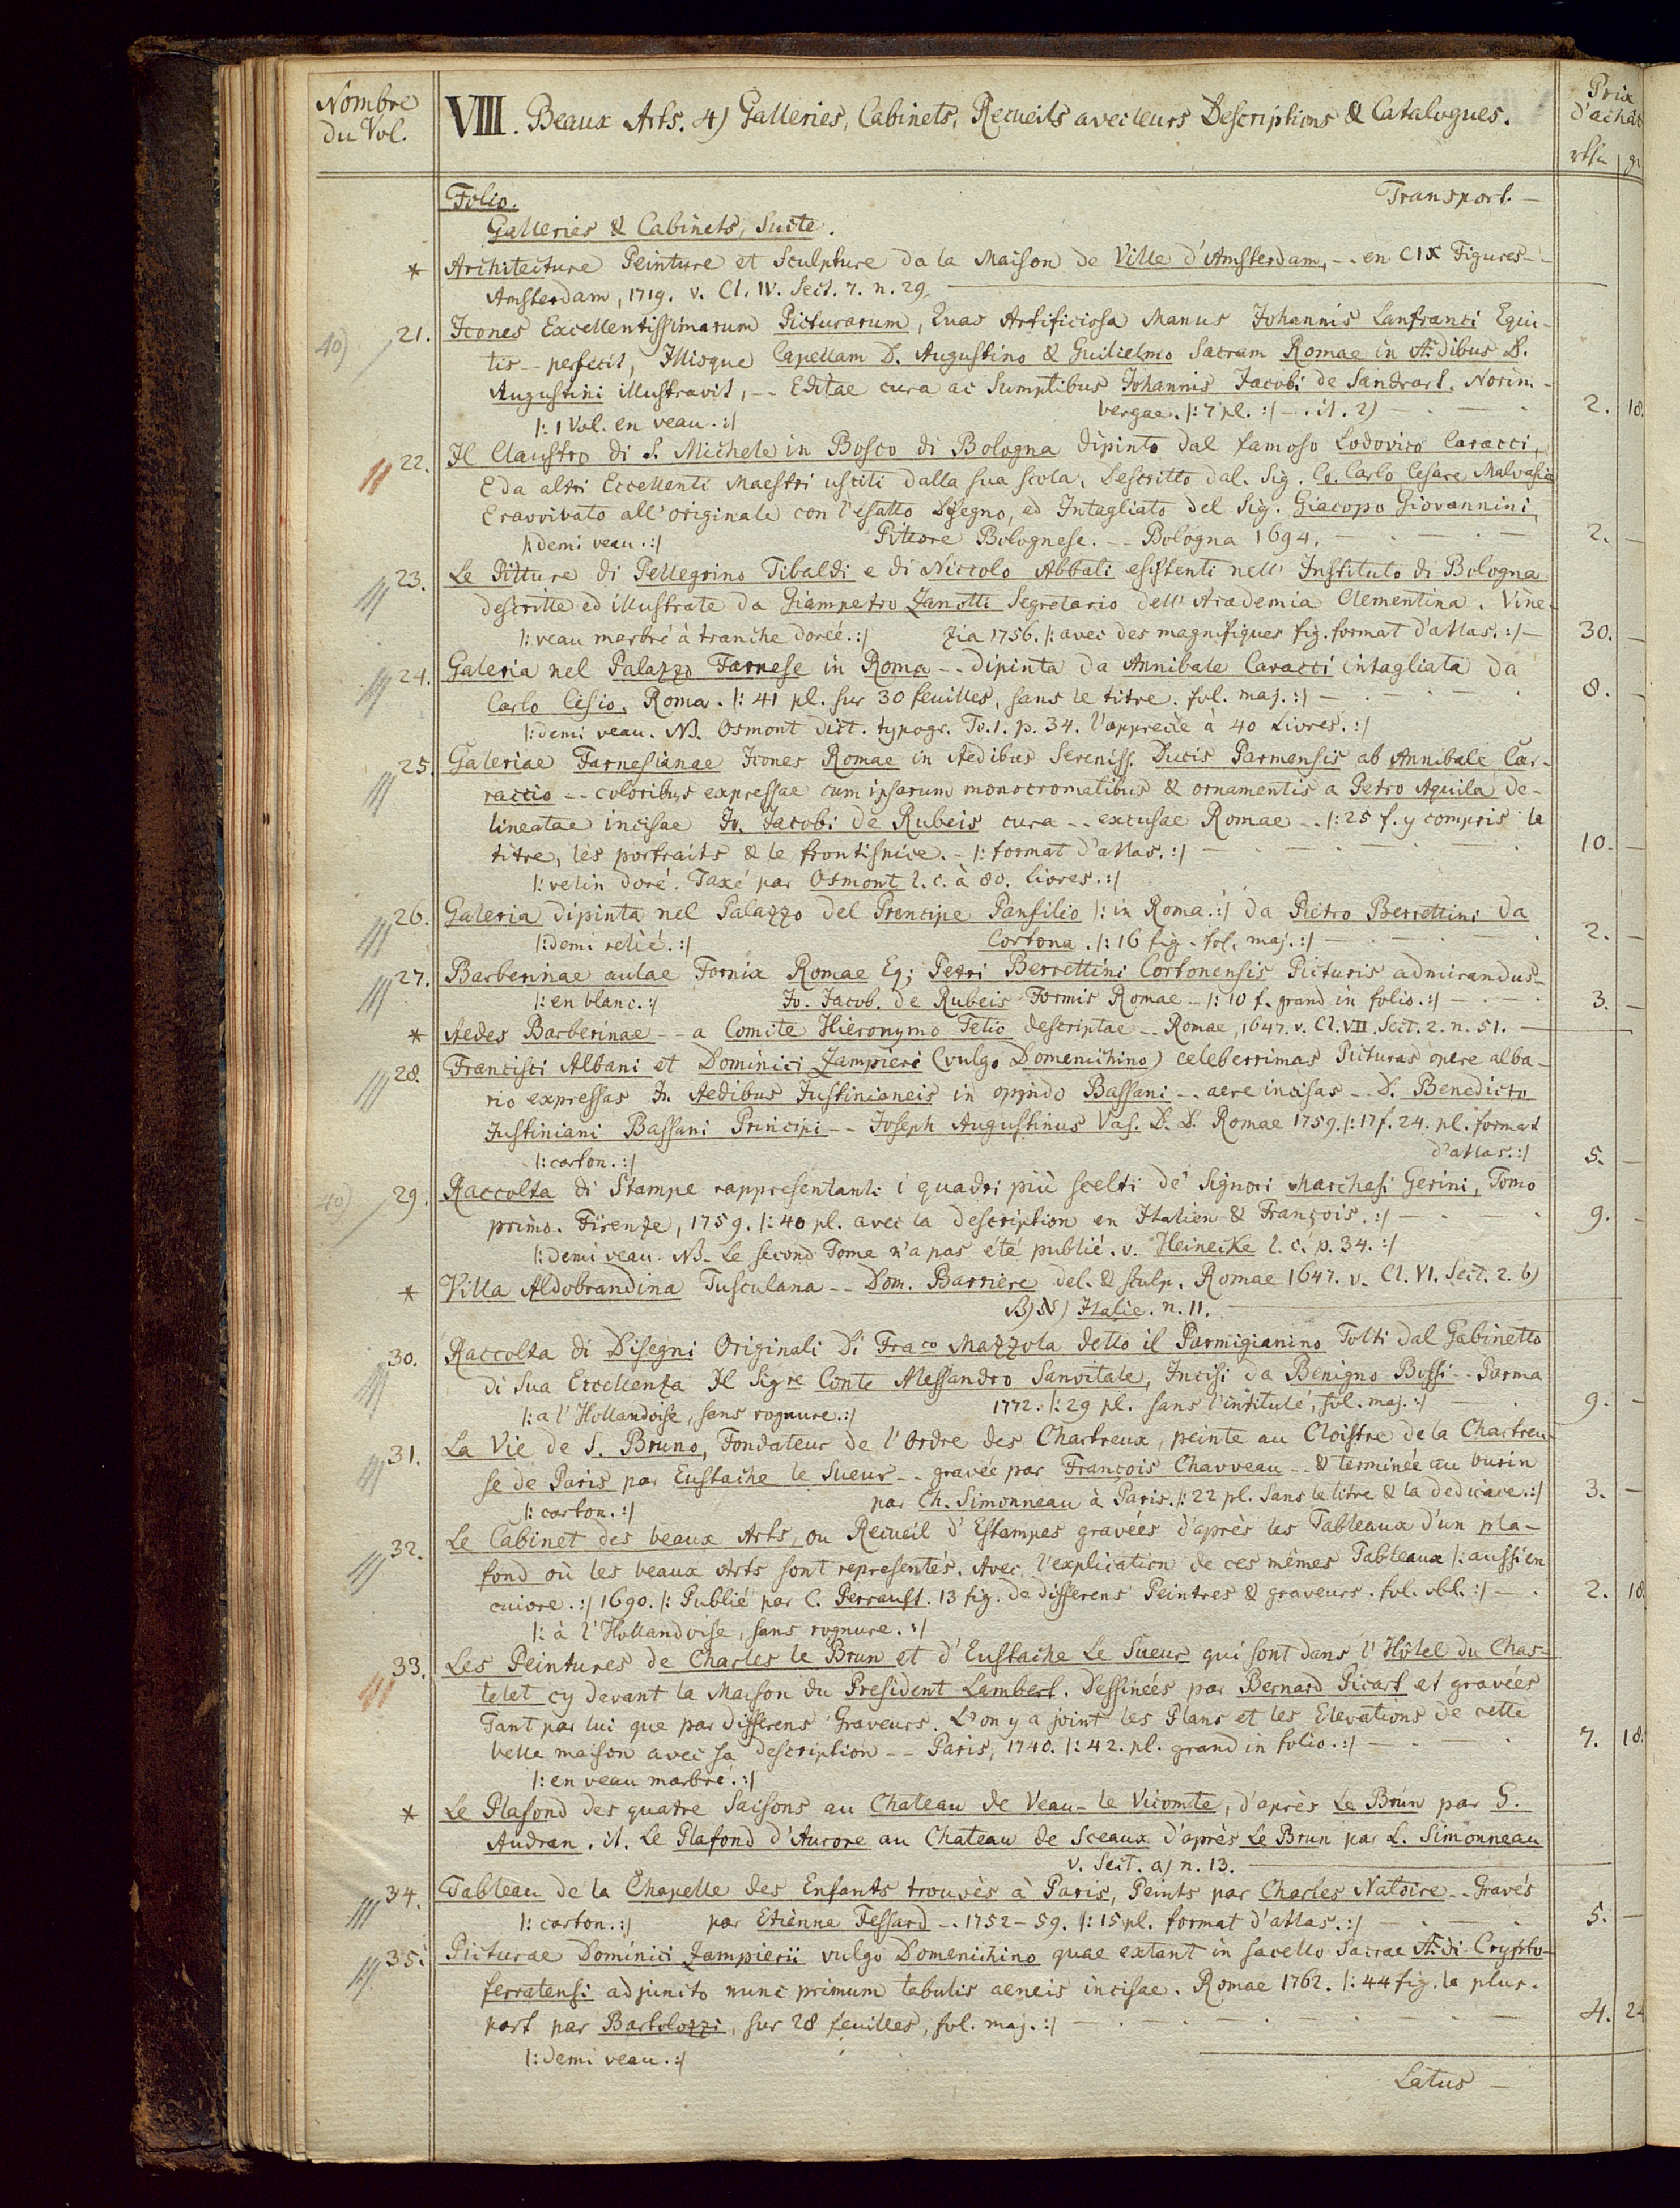 Nombre du Vol.
VIII. Beaux Arts. 4) Galleries, Cabinets, Recueils avec leurs Descriptions & Catalogues.
Prix d'achat
rthr gr
Folio. Transport. —
Galleries & Cabinets, Suite.
* Architecture Peinture et Sculpture da la Maison de Ville d'Amsterdam, -- en CIX Figures --
Amsterdam, 1719. v. Cl. IV. Sect. 7. n. 29.
40) 21. Icones Excellentissimarum Picturarum, Quas Artificiosa Manus Johannis Lanfranci Equi-
tis -- perfecit, Illisque Capellam D. Augustino & Guilielmo Sacram Romae in Aedibus D.
Augustini illustravit, -- Editae cura ac Sumptibus Johannis Jacobi de Sandrart. Norim-
bergae. |: 7 pl. :| -- it. 2) — 2. 18.
|: 1 Vol. en veau. :|
22. Il Claustro di S. Michele in Bosco di Bologna dipinto dal famoso Lodovico Caracci,
E da altri Eccellenti Maestri usciti dalla sua scola, Descritto dal. Sig. Co. Carlo Cesare Malvasia
E ravvivato all'originale con l'esatto Disegno, ed Intagliato del Sig. Giacopo Giovannini,
|: demi veau. :| Pittore Bolognese. -- Bologna 1694. — 2. —
23. Le Pitture di Pellegrino Tibaldi e di Niccolo Abbati esistenti nell' Instituto di Bologna
descritte ed illustrate da Giampetro Zanotti Segretario dell' Academia Clementina. Vine-
|: veau marbré à tranche dorée. :| zia 1756. |: avec des magnifiques fig. format d'atlas. :| — 30. —
24. Galeria nel Palazzo Farnese in Roma -- dipinta da Annibale Caracci intagliata da
Carlo Cesio. Roma. |: 41 pl. sur 30 feuilles, sans le titre. fol. maj. :| — 8. —
|: demi veau. NB. Osmont dict. typogr. To. 1. p. 34. l'apprecie à 40 Livres. :|
25. Galeriae Farnesianae Icones Romae in Aedibus Sereniss. Ducis Parmensis ab Annibale Car-
raccio -- coloribus expressae cum ipsarum monocromatibus & ornamentis a Petro Aquila de-
lineatae incisae Jo. Jacobi de Rubeis cura -- excusae Romae -- |: 25 f. y compris le
titre, les portraits & le frontispice. - |: format d'atlas. :| — 10. —
|: velin doré. Taxé par Osmont l. c. à 80. Livres. :|
26. Galeria dipinta nel Palazzo del Prencipe Panfilio |: in Roma. :| da Pietro Berrettini da
|: demi relié. :| Cortona. |: 16 fig. fol. maj. :| — 2. —
27. Barberinae aulae Fornix Romae Eq; Petri Berrettini Cortonensis Picturis admirandus -
|: en blanc. :| Jo. Jacob. de Rubeis Formis Romae - |: 10 f. grand in folio. :| — 3. —
* Aedes Barberinae -- a Comite Hieronymo Tetio descriptae -- Romae, 1647. v. Cl. VII. Sect. 2. n. 51.
28. Francisci Albani et Dominici Zampieri (vulgo Domenichino) celeberrimas Picturas opere alba-
rio expressas In Aedibus Justinianeis in oppido Bassani -- aere incisas -- D. Benedicto
Justiniani Bassani Principi -- Joseph Augustinus Vas. D. D. Romae 1759. |: 17 f. 24. pl. format
|: carton. :| d'atlas. :| 5. —
40) 29. Raccolta di Stampe rappresentanti i quadri più scelti de' Signori Marchesi Gerini, Tomo
primo. Firenze, 1759. |: 40 pl. avec la description en Italien & François. :| — 9. —
|: demi veau. NB. Le second Tome n'a pas été publié. v. Heinecke l. c. p. 34. :|
* Villa Aldobrandina Tusculana -- Dom. Barrière del. & sculp. Romae 1647. v. Cl. VI. Sect. 2. b)
Italie. n. 11.
30. Raccolta di Disegni Originali Di Fraco Mazzola detto il Parmigianino Tolti dal Gabinetto
di Sua Eccellenza Il Sigre Conte Alessandro Sanvitale, Incisi da Benigno Bossi -- Parma
|: a l'Hollandoise, sans rognure. :| 1772. |: 29 pl. sans l'intitulé, fol. maj. :| — 9. —
31. La Vie de S. Bruno, Fondateur de l'Ordre des Chartreux, peinte au Cloistre de la Chartreu-
se de Paris par Eustache le Sueur -- gravée par François Chauveau -- & terminée au burin
|: carton. :| par Ch. Simonneau à Paris. |: 22 pl. sans le titre & la dedicace. :| 3. —
32. Le Cabinet des beaux Arts, ou Recueil d'Estampes gravées d'après les Tableaux d'un pla-
fond où les beaux Arts sont representés. Avec l'explication de ces mêmes Tableaux |: aussi en
cuivre. :| 1690. |: Publié par C. Perrault. 13 fig. de differens Peintres & graveurs. fol. obl. :| — 2. 18
|: à l'Hollandoise, sans rognure. :|
33. Les Peintures de Charles le Brun et d'Eustache Le Sueur qui sont dans l'Hôtel du Chas-
telet cy devant la Maison du President Lambert. Dessinées par Bernard Picart et gravées
Tant par lui que par differens Graveurs. L'on y a joint les Plans et les Elevations de cette
belle maison avec sa description -- Paris, 1740. |: 42. pl. grand in folio. :| — 7. 18.
|: en veau marbré. :|
* Le Plafond des quatre Saisons au Chateau de Veau-le Vicomte, d'après Le Brun par G.
Audran. it. Le Plafond d'Aurore au Chateau de Sceaux d'après Le Brun par L. Simonneau
v. Sect. a) n. 13.
34. Tableau de la Chapelle des Enfants trouvés à Paris, Peints par Charles Natoire -- Gravés
|: carton. :| par Etienne Fessard -- 1752-59. |: 15 pl. format d'atlas. :| — 5. —
35. Picturae Dominici Zampierii vulgo Domenichino quae extant in sacello Sacrae Aedi Crypto-
ferratensi adjuncto nunc primum tabulis aeneis incisae. Romae 1762. |: 44 fig. la plus-
part par Bartolozzi, sur 28 feuilles, fol. maj. :| — 4. 24
|: demi veau. :|
Latus —